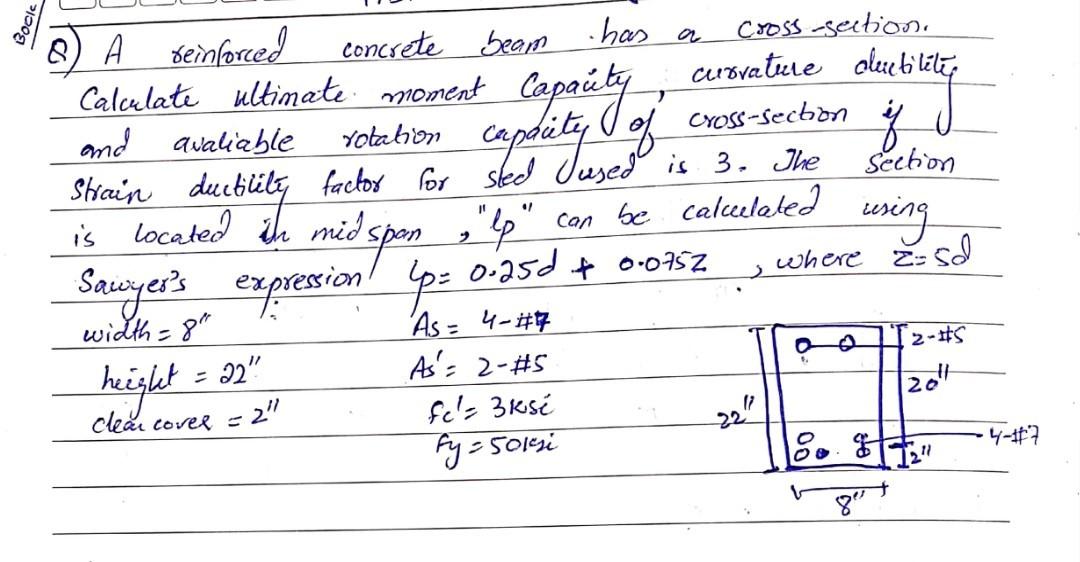 Book
Q) A reinforced concrete beam has a cross-section.
Calculate ultimate moment Capacity, curvature ductility
and avaliable rotation capacity of cross-section if
Strain ductility factor for steel used is 3. The section
is located in midspan, "lp" can be calculated using
Sawyer's expression lp = 0.25d + 0.075Z , where Z=5d
width = 8" As = 4-#7
height = 22" As' = 2-#5
clear cover = 2" fc' = 3ksi
fy = 50ksi
2-#5
20"
22"
4-#7
2"
8"